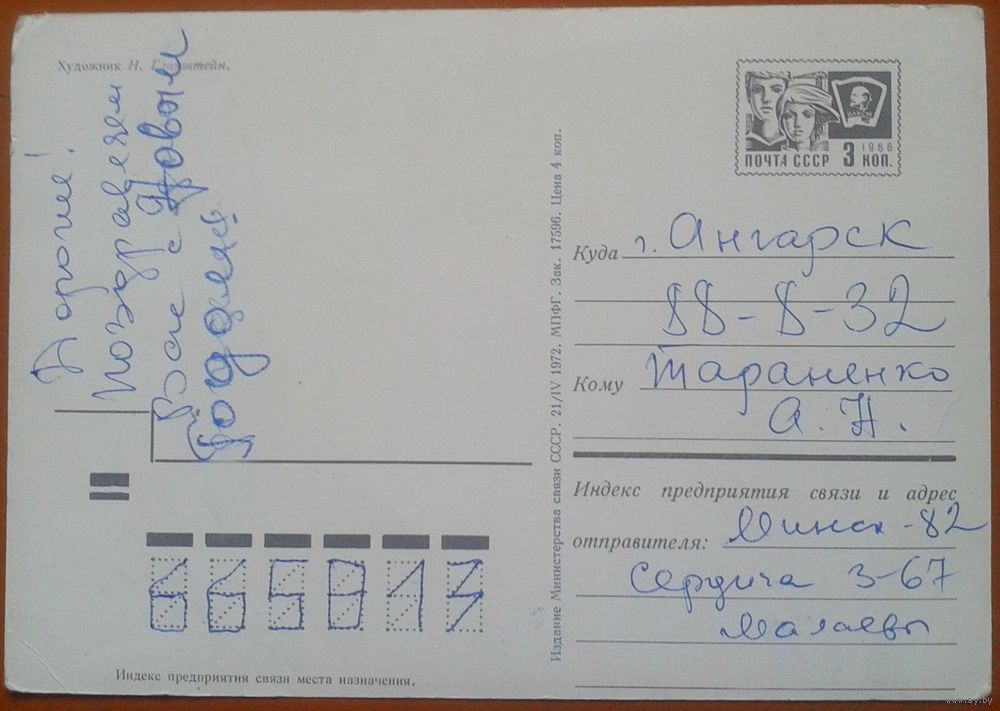 Художник Н.
Дорогие!
поздравляем
Вас с Новым
Годом!
ПОЧТА СССР 3 КОП.
1966
ВЛКСМ
Куда г. Ангарск
88-8-32
Кому Тараненко
А. Н.
Индекс предприятия связи и адрес
отправителя: Минск-82
Сердича 3-67
Малаевы
Издание Министерства связи СССР. 21/IV 1972. МПФГ. Зак. 17596. Цена 4 коп.
665813
Индекс предприятия связи места назначения.
www.ay.by